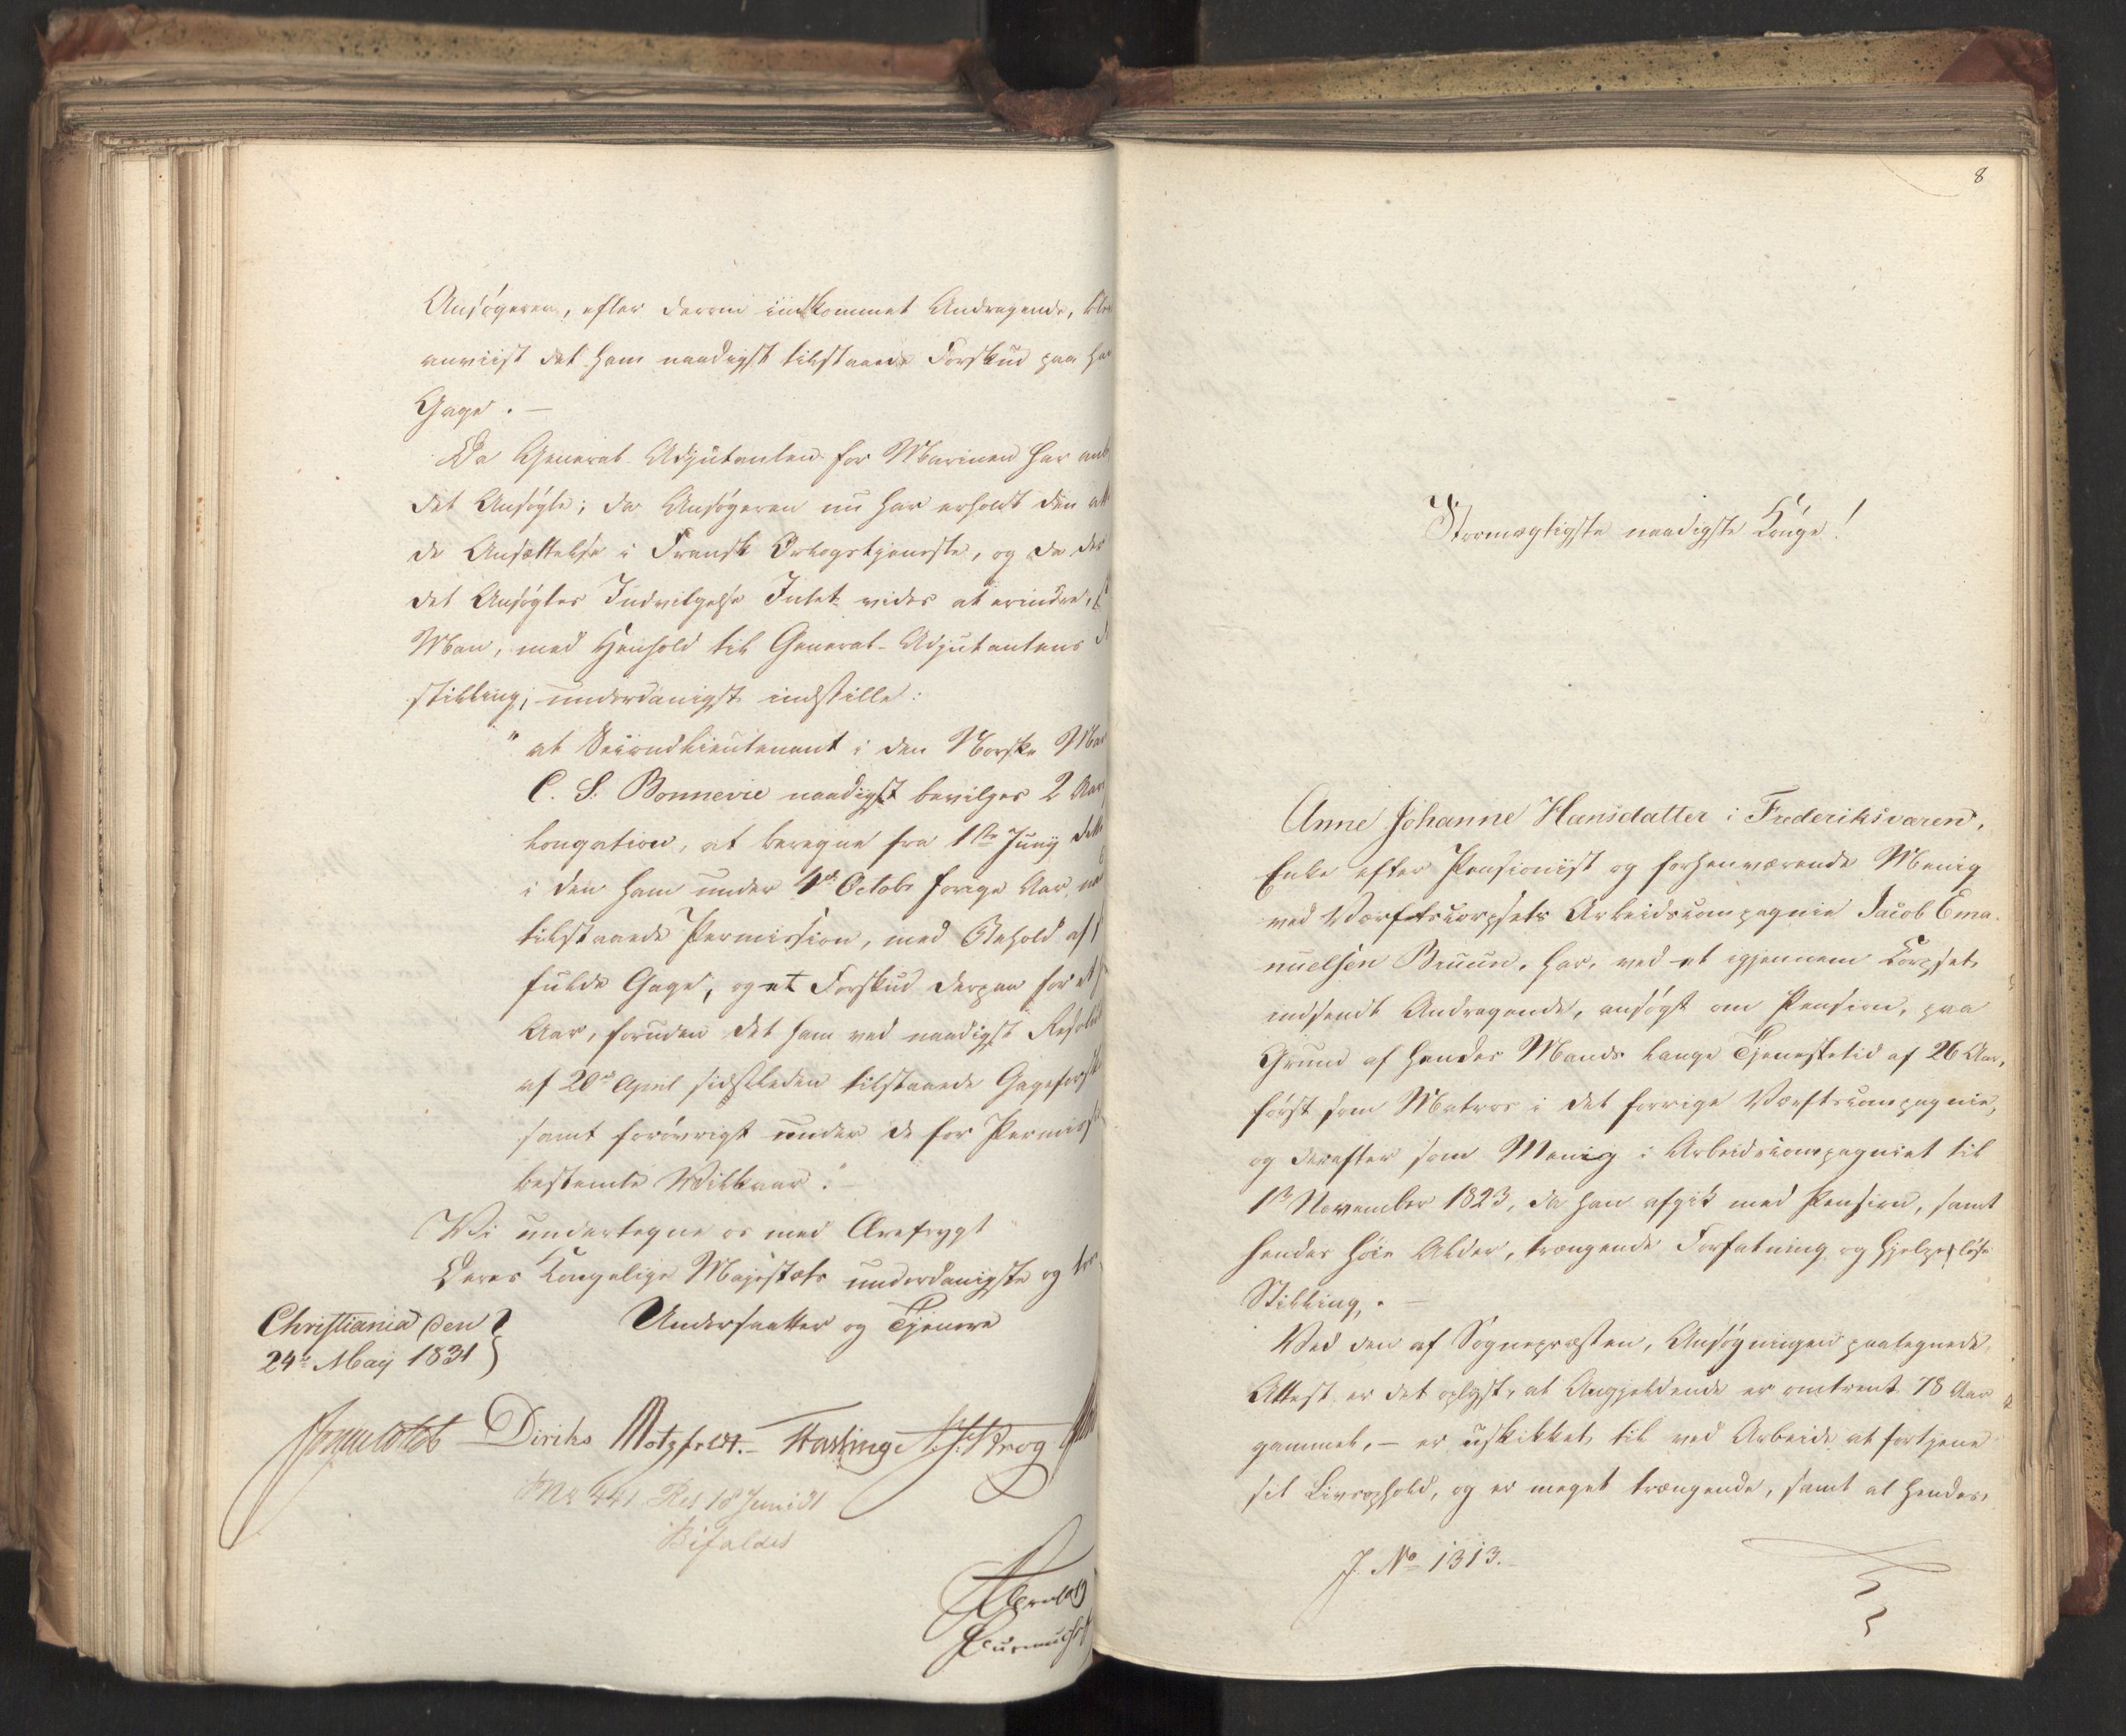 Ansøgeren, efter derom indkommet Andragende,
anviist det ham naadigst tilstaaede Forskud paa
Gage. —
Da General-Adjutanten for Marinen har
det Ansøgte; da Ansøgeren nu har erholdt den
de Ansættelse i Fransk Orlogstjeneste, og da
det Ansøgtes Indvilgelse Intet vides at erindre,
Man, med Henhold til General-Adjutantens
stilling, underdanigst indstille:
" at Secondlieutenant i den Norske
C. S. Bonnevie naadigst bevilges 2 Aars
longation, at beregne fra 1ste Juny
i den ham under 4de Octobr forige Aar
tilstaaede Permission, med Behold af
fulde Gage, og et Forskud derpaa for et
Aar, foruden det ham ved naadigst
af 20de April sidstleden tilstaaede
samt forøvrigt under de for
bestemte Vilkaar."
Vi undertegne os med Ærefrygt
Deres Kongelige Majestæts underdanigste og
Christiania den
24de May 1831
Undersaatter og Tjenere
Diriks Motzfeldt. Krog
No 441 Res 18 Juni 31
Bifaldes
8
Stormægtigste naadigste Konge!
Anne Johanne Hansdatter i Frederiksværn,
Enke efter Pensionist og forhenværende Menig
ved Værftscorpsets Arbeidscompagnie Jacob Ema-
nuelsen Bruun, har, ved et igjennem Corpset
indsendt Andragende, ansøgt om Pension, paa
Grund af hendes Mands lange Tjenestetid af 26 Aar,
først som Matros i det forrige Værftscompagnie,
og derefter som Menig i Arbeidscompagniet til
1ste November 1823, da han afgik med Pension, samt
hendes høie Alder, trængende Forfatning og hjelpesløse
Stilling. —
Ved den af Sognepræsten, Ansøgningen paategnede,
Attest er det oplyst, at Angjeldende er omtrent 78 Aar
gammel, – er uskikket til ved Arbeide at fortjene
sit Livsophold, og er meget trængende, samt at hendes
J. No 1313.